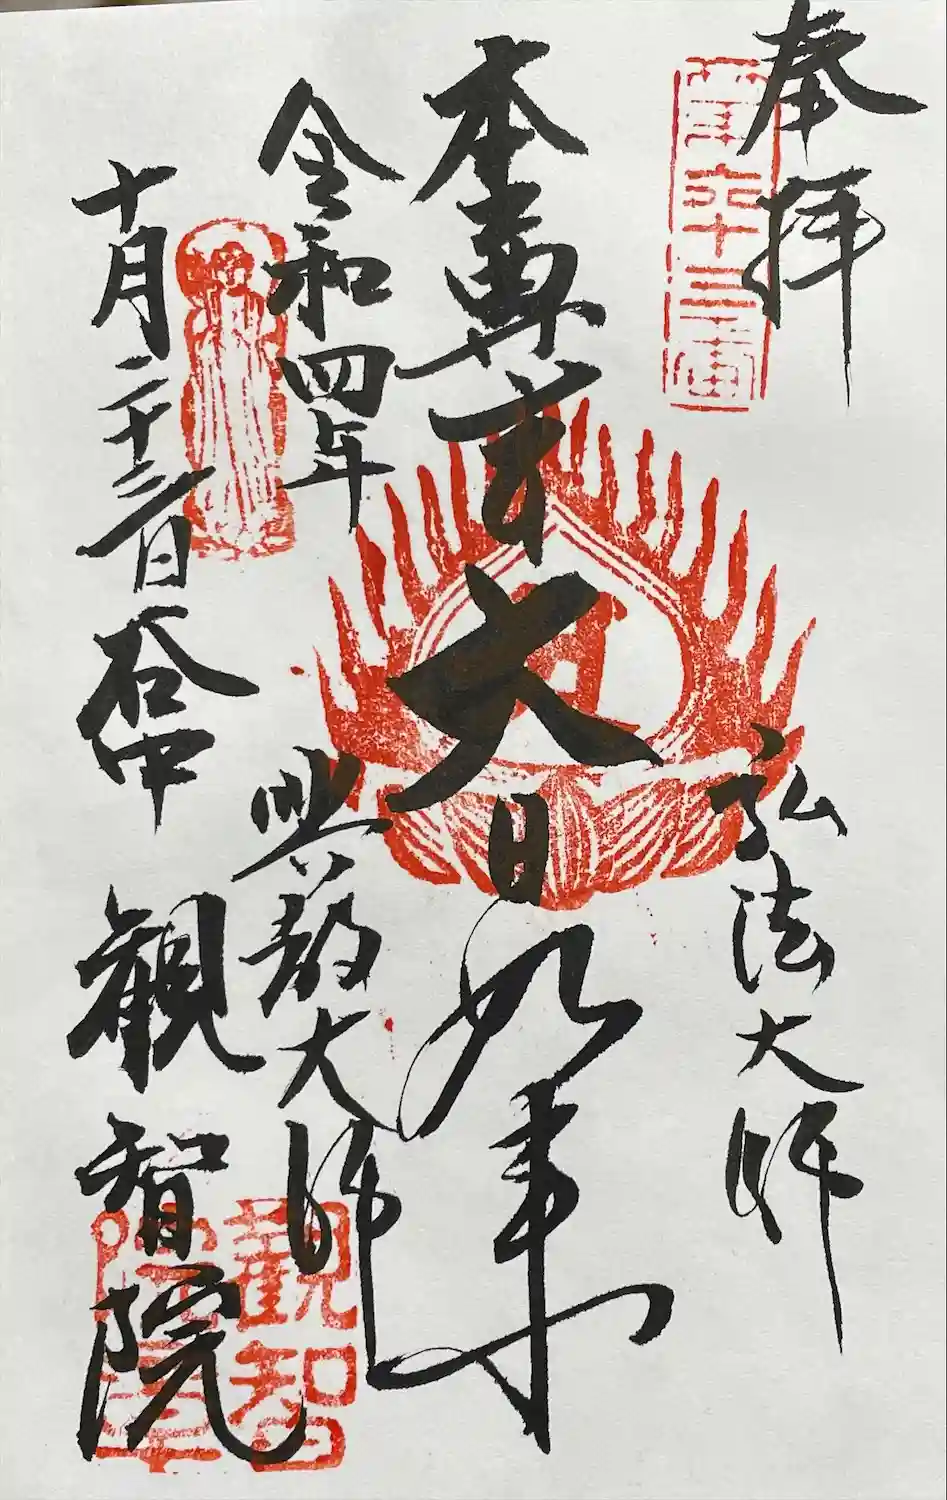 奉拝
弘法大師
本尊
大日如来
令和四年
興教大師
十月二十三日
観智院
觀智
院章